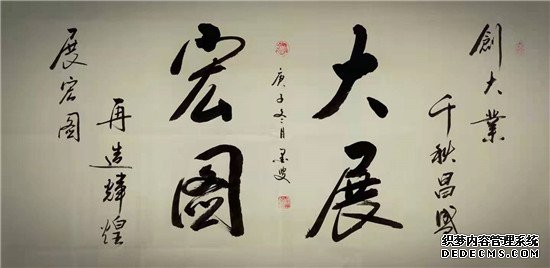 創大業
千秋昌盛
大展
宏图
庚子冬月墨叟
再造辉煌
展宏图
织梦内容管理系统
DEDECMS.COM